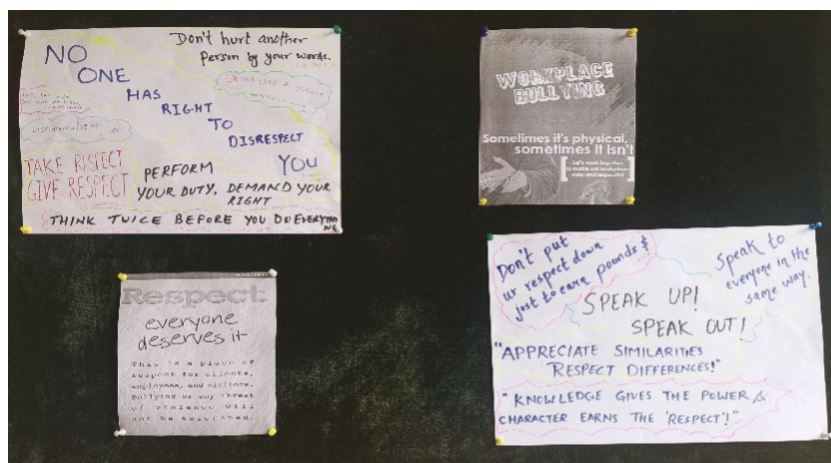 NO
ONE
HAS
RIGHT
TO
DISRESPECT
YOU
Don't hurt another
person by your words.
TAKE RESPECT
GIVE RESPECT
PERFORM
YOUR DUTY, DEMAND YOUR
RIGHT
THINK TWICE BEFORE YOU DO EVERYTHI
NG
WORKPLACE
BULLYING
Sometimes it's physical,
sometimes it isn't
Let's work together
to make our workplace
safe and respectful
Respect
everyone
deserves it
This is a place of
respect for clients,
employees, and visitors.
Bullying or any threat
of violence will
not be tolerated.
Don't put
ur respect down
just to earn pounds &
Speak to
everyone in the
same way.
SPEAK UP!
SPEAK OUT!
"APPRECIATE SIMILARITIES
RESPECT DIFFERENCES!"
"KNOWLEDGE GIVES THE POWER, &
CHARACTER EARNS THE 'RESPECT'!"